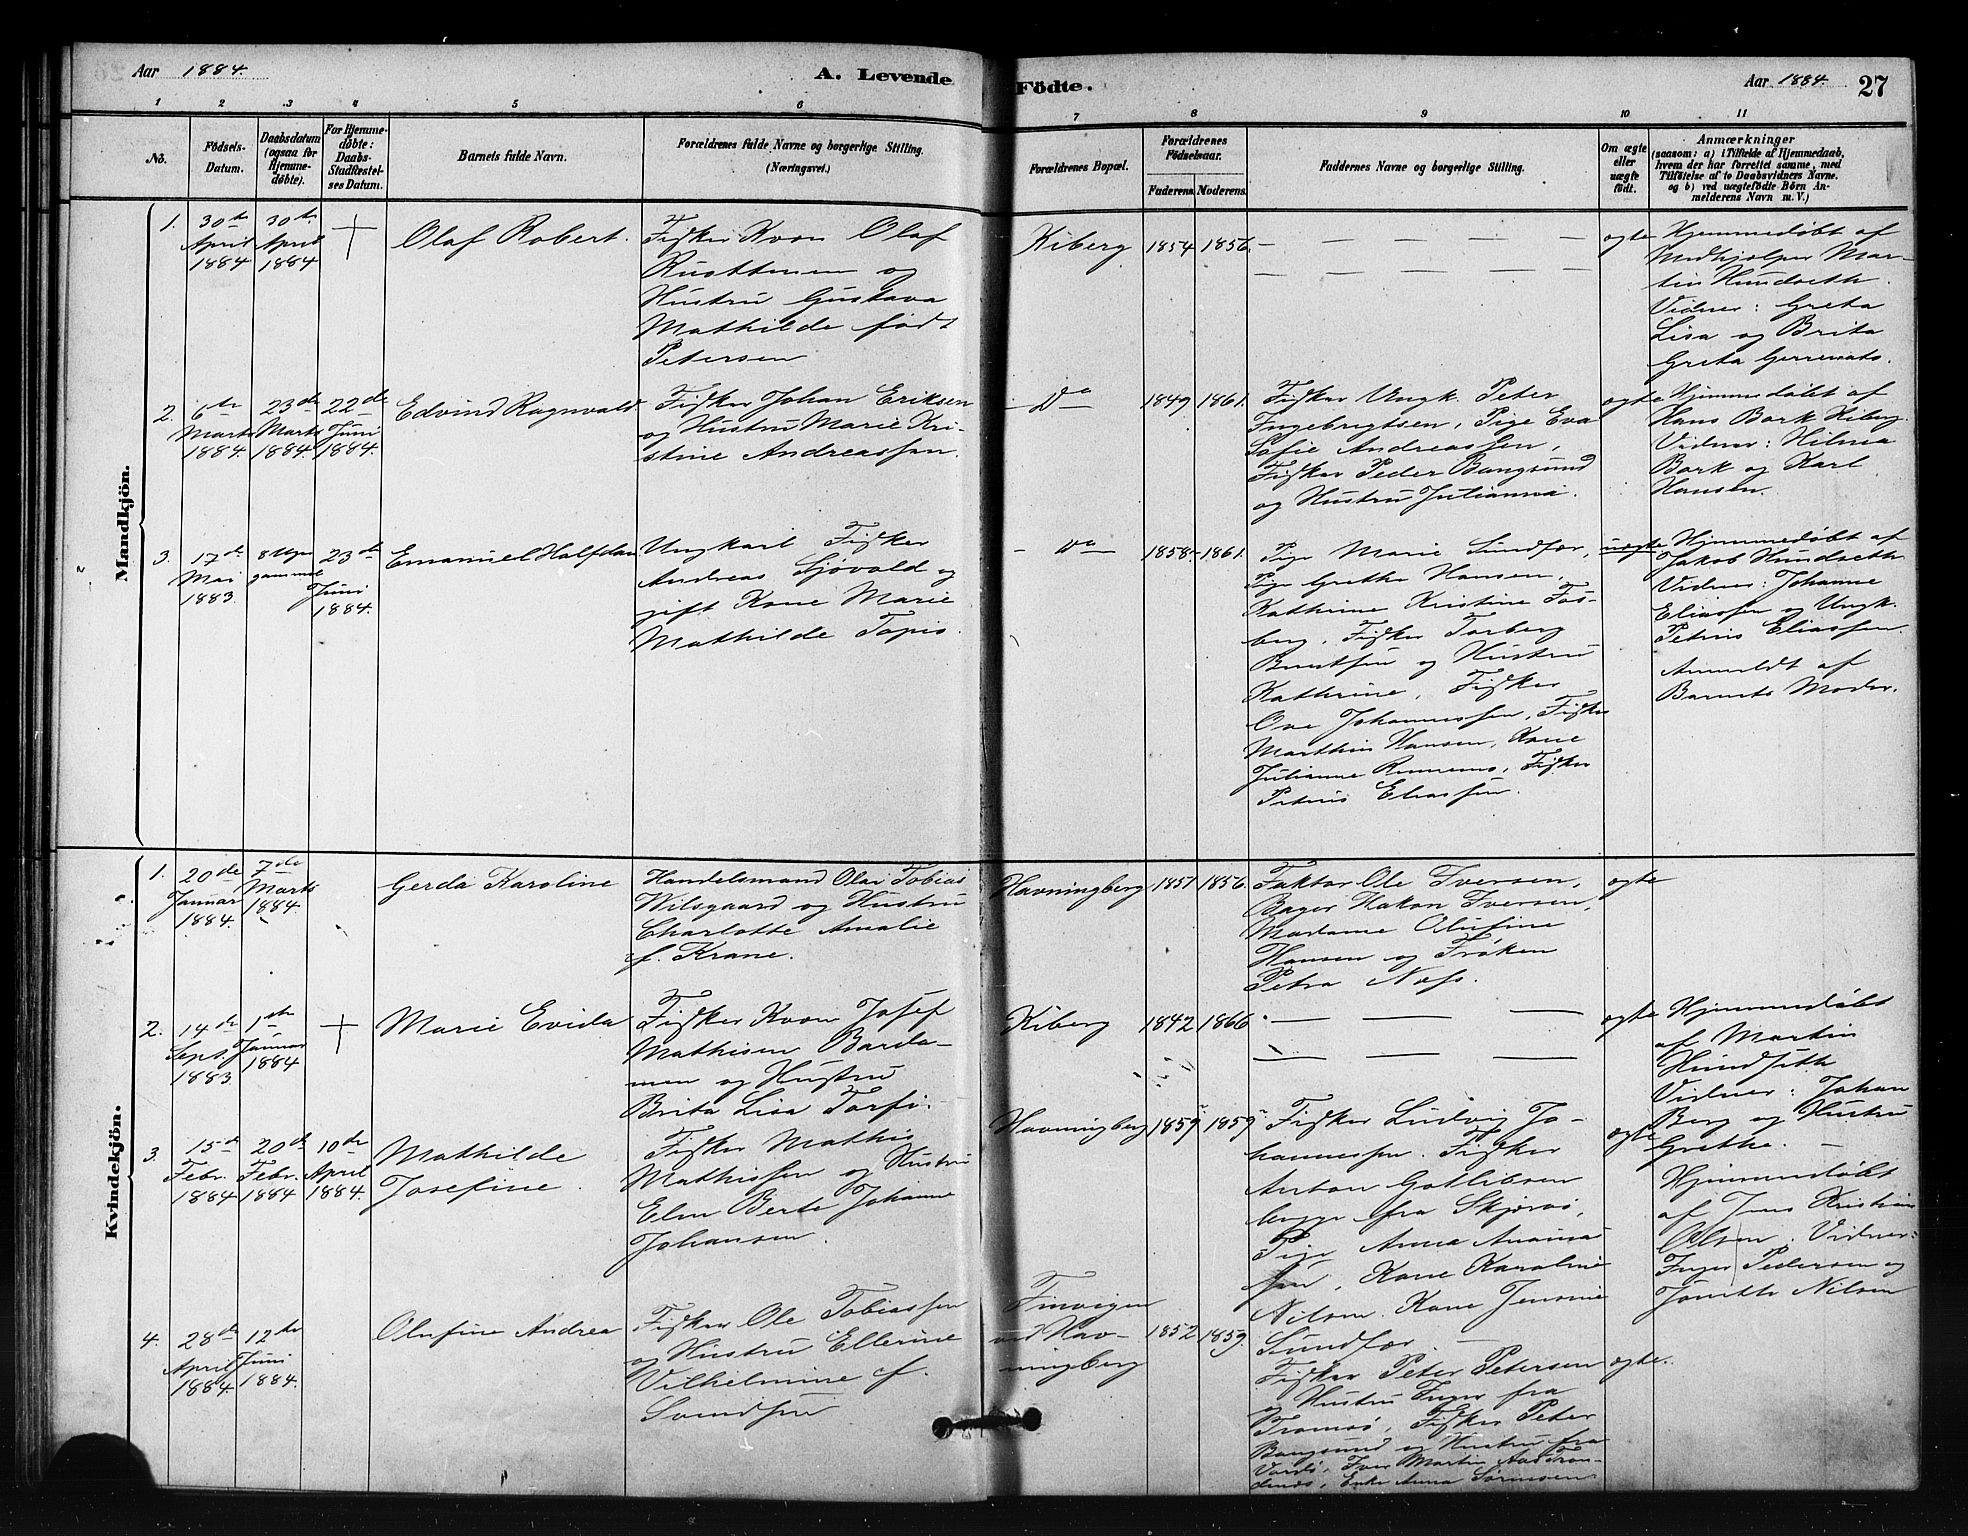 Aar 1884.
A. Levende Födte.
Aar 1884. 27
1 2 3 4 5 6 7 8 9 10 11
No.
Födsels-
Datum.
Daabsdatum
(ogsaa for
Hjemme-
døbte).
For Hjemme-
døbte:
Daabs-
Stadfæstel-
ses Datum.
Barnets fulde Navn.
Forældrenes fulde Navne og borgerlige Stilling.
(Næringsvei.)
Forældrenes Bopæl.
Forældrenes
Fødselsaar.
Faderens. Moderens.
Faddernes Navne og borgerlige Stilling.
Om ægte
eller
uægte
født.
Anmærkninger
(saasom: a) i Tilfælde af Hjemmedaab,
hvem der har forrettet samme, med
Tilføielse af to Daabsvidners Navne.
og b) ved uægtefødte Børn An-
melderens Navn m. V.)
Mandkjön.
1.
30te
April
1884
30te
April
1884
Olaf Robert.
Fisker Kvæn Olaf
og
Hustru Gustava
Mathilde født
Petersen
Kiberg
1854
1856.
ægte
Hjemmedøbt af
Medhjælper Mar-
tin Hundseth.
Vidner: Greta
Lisa og Brita
Greta
2.
6te
Marts
1884.
23de
Marts
1884.
22de
Juni
1884.
Edvind Ragnvald
Fisker Johan Eriksen
og Hustru Marie Kri-
stine Andreassen.
Do
1849
1861.
Fisker Ungk. Peter
Ingebrigtsen, Pige Eva
Sofie Andreassen,
Fisker Peder Bangsund
og Hustru Julianna.
ægte
Hjemmedøbt af
Hans Bark Kiberg.
Vidner: Hilma
Bark og Karl
Hansen.
3.
17de
Mai
1883.
8 Uger
gammel
23de
Juni
1884.
Emanuel Halfdan
Ungkarl Fisker
Andreas Sjøvold og
gift Kone Marie
Mathilde
Do
1858
1861.
Pige Marie Sundfær,
Pige Grethe Hansen,
Kathrine Kristine Fos-
berg, Fisker Torberg
Berntsen og Hustru
Kathrine, Fisker
Ove Johannessen, Fisker
Marthin Hansen, Kone
Julianne Fisker
Petrus Eliassen.
uægte
Hjemmedøbt af
Jakob Hundseth
Vidner: Johanne
Eliassen og Ungk.
Petrus Eliassen.
Anmeldt af
Barnets Moder.
Kvindekjön.
1.
20de
Januar
1884.
7de
Marts
1884.
Gerda Karoline
Handelsmand Olai Tobias
Wilsgaard og Hustru
Charlotte Amalie
f. Krane.
Havningberg
1851
1856.
Faktor Ole Iversen,
Bager Hakon Iversen,
Madame Olufine
Hansen og Frøken
Petra Næss.
ægte
2.
14de
Sept.
1883
1ste
Januar
1884
Marie Evida
Fisker Kvæn Josef
Mathisen Barda-
men og Hustru
Brita Lisa
Kiberg
1842
1866
ægte
Hjemmedøbt
af Martin
Hundseth
Vidner: Johan
Berg og Hustru
Grethe.
3.
15de
Febr.
1884
20de
Febr.
1884
10de
April
1884.
Mathilde
Josefine.
Fisker Mathis
Mathissen og Hustru
Elen Berte Johanne
Johansen.
Havningberg
1859
1859
Fisker Ludvig Jo-
hannessen. Fisker
Anton Gotlibsen
begge fra Skjervø,
Pige Anna
sen, Kone Karoline
Nilsen. Kone Jensine
Sundfær.
ægte
Hjemmedøbt
af Jens Kristian
Olsen. Vidner:
Inger Pedersen og
Nilsen
4.
28de
April
1884.
12te
Juni
1884.
Olufine Andrea
Fisker Ole Tobiassen
og Hustru Ellerine
Vilhelmine f.
Finvigen
ved Hav-
ningberg
1852
1859.
Fisker Peter Petersen
og Hustru Inger fra
Tromsø, Fisker Peter
Bangsund og Hustru fra
Vardø, Iver Martin
Enke Anna Sørensen
ægte.